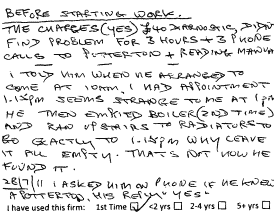 BEFORE STARTING WORK.
THE CHARGES (YES) £40 DIAGNOSTIC, DIDN'T
FIND PROBLEM FOR 3 HOURS + 3 PHONE
CALLS TO POTTERTON + READING MANUAL
I TOLD HIM WHEN HE ARRANGED TO
COME AT 10AM, I HAD APPOINTMENT
1-15PM SEEMS STRANGE TO ME AT 1PM
HE THEN EMPTIED BOILER (2ND TIME)
AND RAN UPSTAIRS TO RADIATOR TO
GO EXACTLY TO 1-15PM WHY LEAVE
IT ALL EMPTY. THAT'S NOT HOW HE
FOUND IT.
28/7/11 I ASKED HIM ON PHONE IF HE KNEW
A POTTERTON, HIS REPLY "YES"
I have used this firm: 1st Time <2 yrs 2-4 yrs 5+ yrs